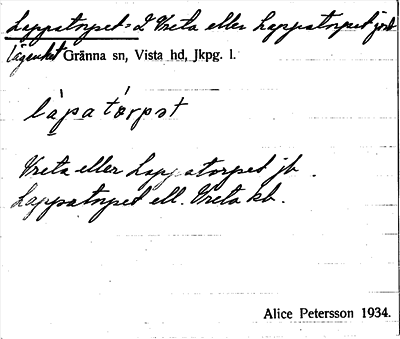 Lappatorpet = L Vreta eller Lappatorpet jord
lägenhet Gränna sn, Vista hd, Jkpg. l.
làpatórpət
Vreta eller Lappatorpet jb.
Lappatorpet ell. Vreta kb.
Alice Petersson 1934.